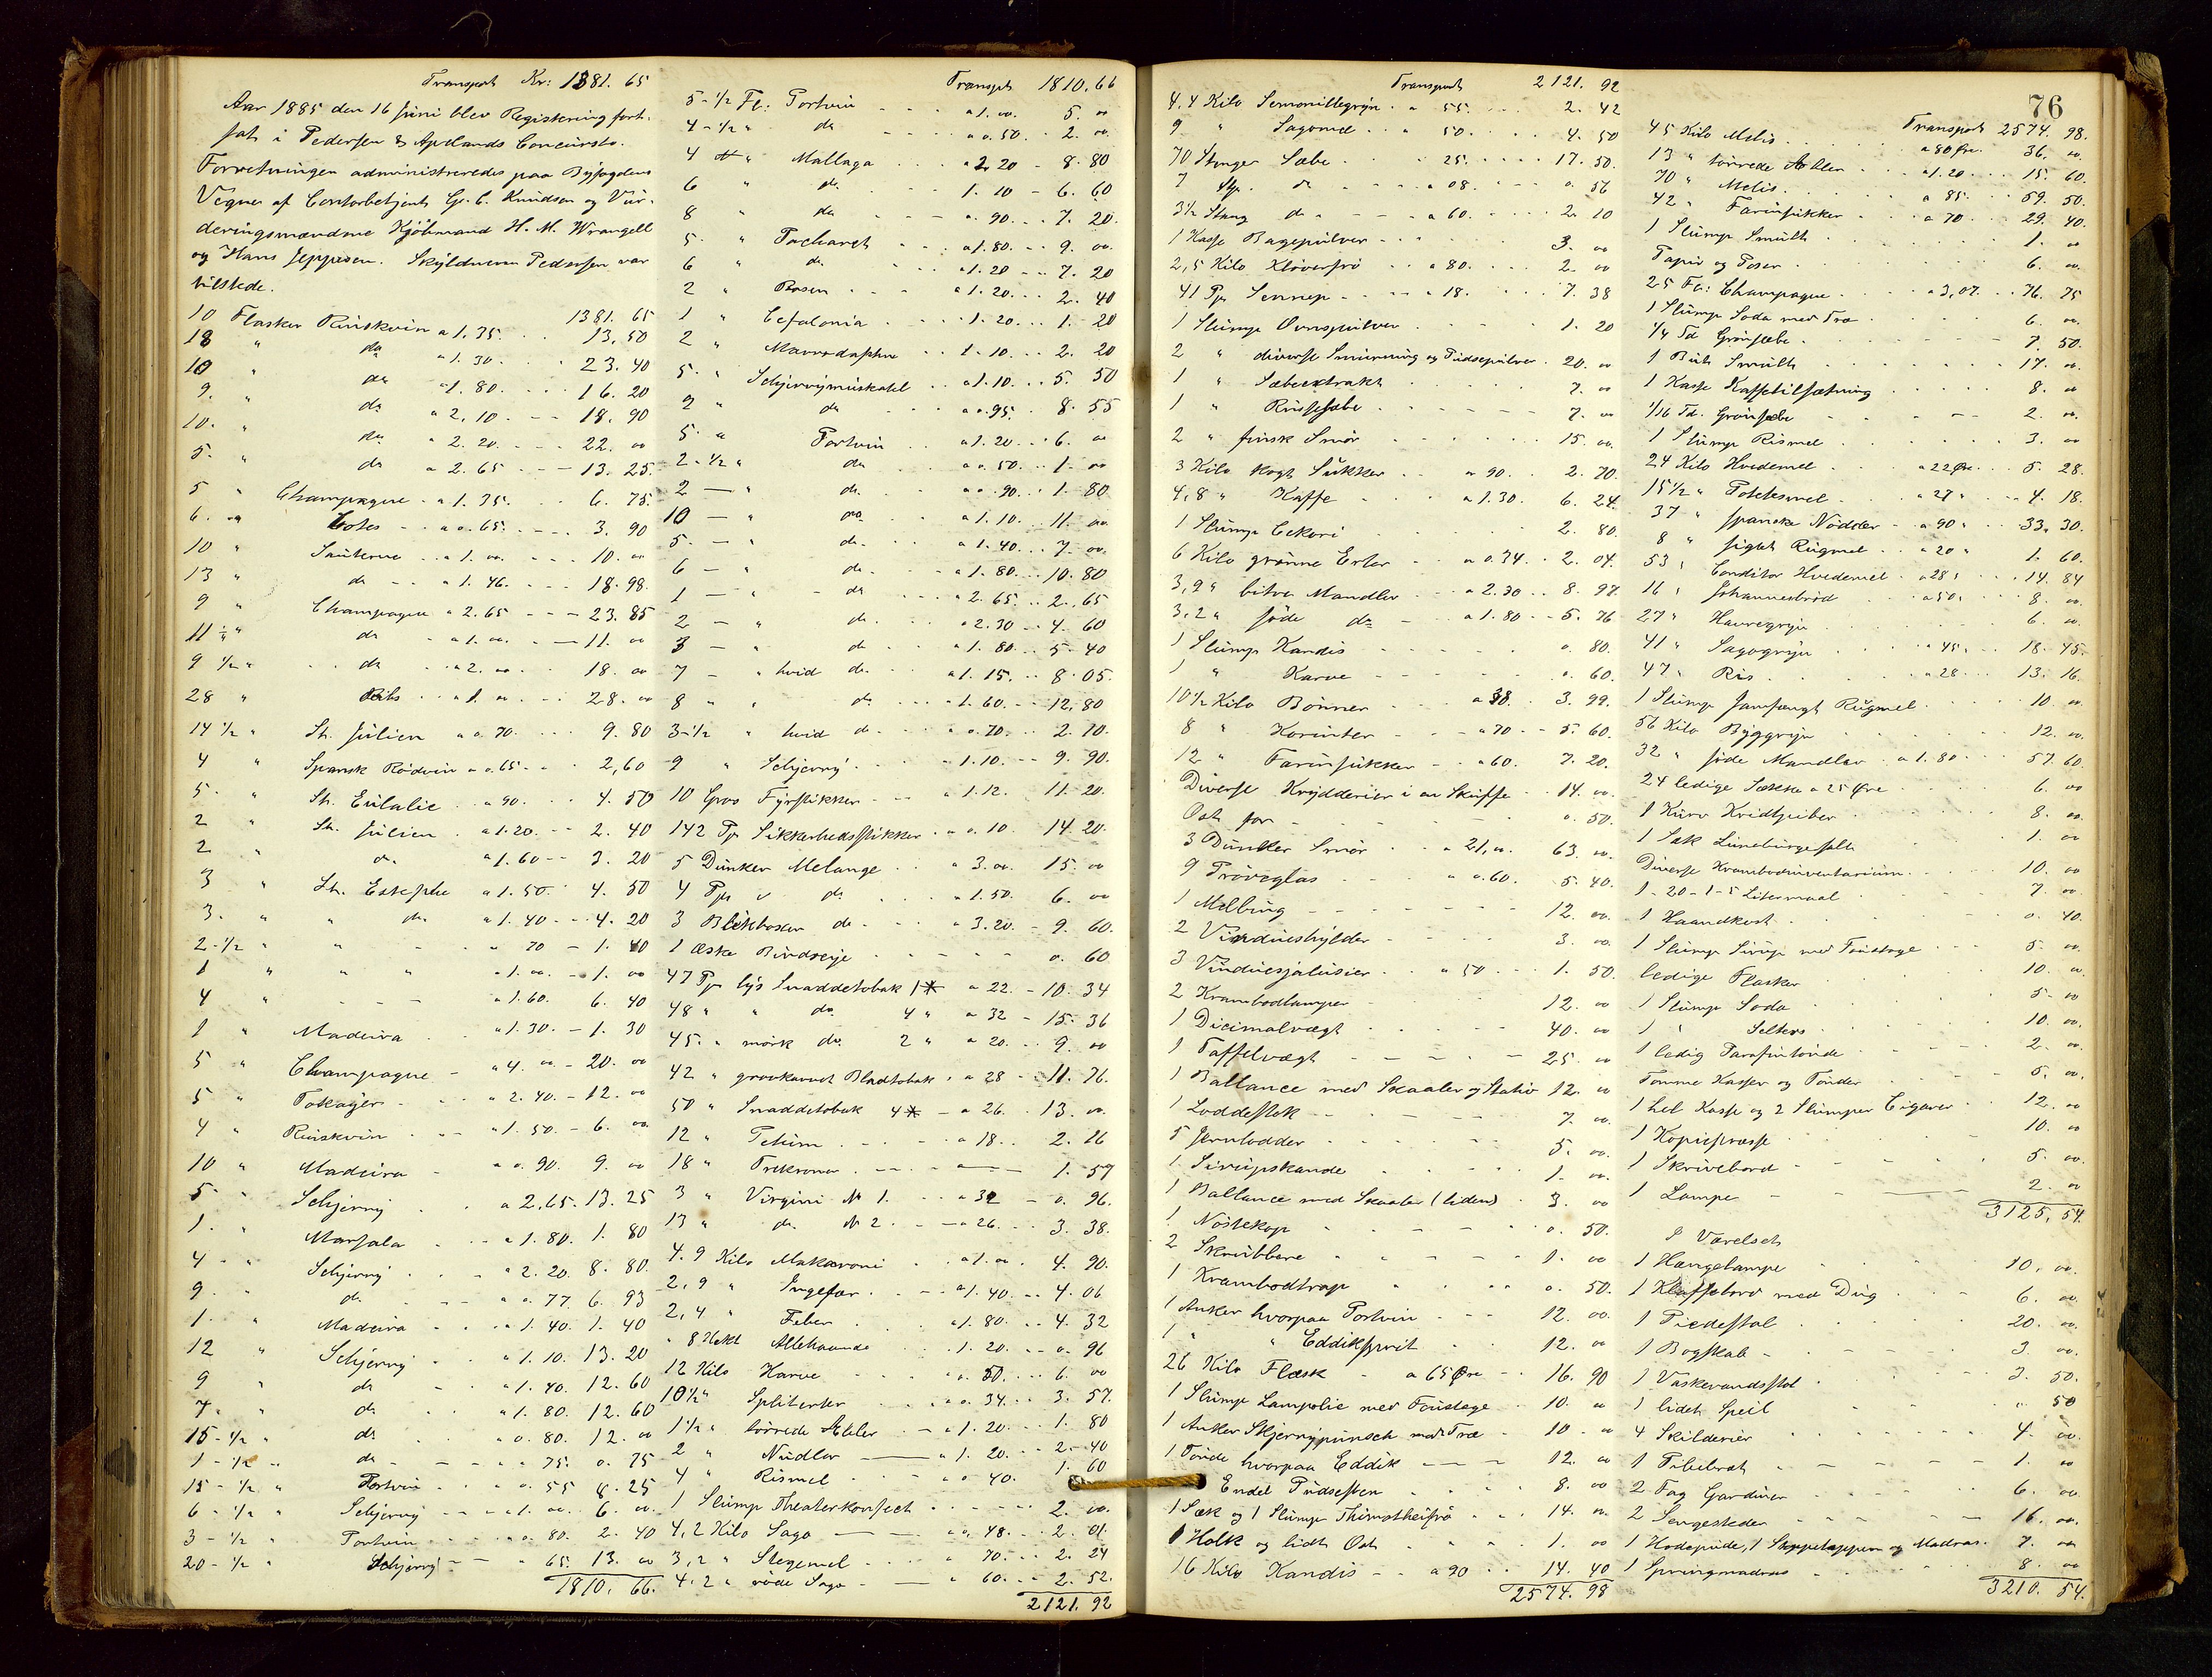 Transport Kr: 1381. 65
Aar 1885 den 16 Juni blev Registrering fort-
sat i Pedersen & Apelands Concursbo.
Forretningen administreredes paa Byfogdens
Vegne af Contorbetjent G. C. Knudsen og Vur-
deringsmændene Kjöbmand H. M. Wrangell
og Hans Jeppesen. Skyldneren Pedersen var
tilstede.
1381. 65
10 Flasker Rinskvin a 1.35. 13,50
18 " do a 1.30. 23.40
10 " do a 1.80. 16.20
9. " do a 2.10. 18.90
10. " do a 2.20. 22. 00
5. " do a 2.65. 13.25.
5 " Champagne a 1.35. 6.75.
6. " Cotes a 0.65. 3.90
10 " Sauterne a 1.00. 10. 00
13 " do a 1.46. 18.98.
9 " Champagne a 2.65 23.85
11 " do a 1.00. 11. 00
9 1/2 " do a 2.00 18. 00
28 " a 1.00 28. 00
14 1/2 " St. Julien a 0.70. 9.80
4 " Spansk Rödvin a 0.65. 2,60
5. " St. Eulalie a 90. 4.50
2 " St. Julien a 1.20. 2.40
2 " do a 1.60 3.20
3 " St. Estephe a 1.50. 4.50
3. " " do a 1.40 4.20
2-1/2 " " " 70 1.40
1 " " " a 1.00. 1. 00
4 " a 1.60. 6.40
1 " Madeira a 1.30. 1.30
5 " Champagne a 4. 00 20. 00
5 " Tokayer a 2.40. 12. 00
4 " Rinskvin a 1.50. 6. 00
10 " Madeira a 0.90. 9. 00
5. " Schjerry a 2,65. 13.25
1. " Marsala a 1.80. 1.80
4 " Schjerry a 2.20. 8.80.
9. " do a 0.77. 6.93
1. " Madeira a 1.40. 1.40
12 " Schjerry a 1.10. 13.20
9 " do a 1.40. 12.60
7. " do a 1.80. 12.60
15-1/2 " do a 0.80. 12. 00
1-1/2 " do a 75. 0.75
15-1/2 " Portvin a 0.55 8.25
6-1/2 " Schjerry a 1.00. 6. 00
3-1/2 " Portvin a 0.80. 2.40
20-1/2 " Schjerry 65. 13. 00
1810. 66.
Transpt 1810,66
5-1/2 Fl: Portvin a 1.00. 5. 00
4-1/2 " do a 0.50. 2. 00
4 " Mallaga a 2.20 8.80
6 " do 1.10 6.60
8 " do a. 90. 7.20.
5. " Pacharet a 1.80. 9. 00
6 " do a 1.20 7.20
2 " Rosen a 1.20. 2.40
1 " Cefalonia 1.20. 1.20
2 " Mavrodaphne 1.10. 2.20
5. " Schjerrymuskatel a 1.10. 5.50
9 " do a 0.95. 8.55
5. " Portvin a 1.20. 6. 00
2-1/2 " do a 0.50. 1. 00
2 — " do a 0.90. 1.80
10 — " do a 1.10. 11. 00
5. — " do a 1.40. 7. 00.
6 — " do a 1.80. 10.80
1 — " do a 2.65. 2.65
2 — " do a 2.30 4.60
3 — " do a 1.80. 5.40
7 — " hvid do a 1.15. 8.05.
8 " " do 1.60. 12,80
3-1/2 " hvid do a 0.70. 2.10.
9 " Schjerry 1.10. 9.90.
10 Gros Fyrstikker a 1.12. 11.20.
142 Pk Sikkerhedsstikker a 0.10 14.20.
5 Dunker Melange a 3.00. 15. 00
4 Pk do a 1.50. 6. 00
3 Blikboxer do a 3.20 9.60.
1 æske 0.60
47 Pk lys Snaddetobak 1* a 22. 10.34
48 " " do 4 " a 32 15.36
45. " mörk do. 2 " a 20. 9. 00
42 " grovkarvet Bladtobak a 28 11.76.
50 " Snaddetobak 4* a 26. 13. 00.
12 " Petum a 18. 2.16
18 " Trekroner 1.59
3 " Virgini No 1. a 32 0.96.
13 " do No 2. a 26. 3.38.
4.9 Kilo Makaroni a 1.00. 4.90.
2,9 " Ingefær a 1.40. 4.06
2,4 " Feber a 1.80. 4.32
8 Hekt Allehaande 1.20. 0.96
12 Kilo Karve a 0.50. 6. 00
10 1/2 " Spliterter a 0.34. 3.57.
1 1/2 " törrede Æbler a 1.20. 1.80
2 " Nudler a 1.20. 2.40
4 " Rismel a 0.40. 1.60
1 Slump Theaterkonfect 2. 00.
4,2 Kilo Sago a 0.48. 2.01.
3,2 " Stegemel a 70. 2.24
4.2 " röde Sago a 60. 2.52.
2121. 92
Transport 2121. 92
4,4 Kilo Semouillegryn a 55. 2.42
9 " Sagomel " 50. 4.50
70 Stenger Sæbe " 25. 17.50.
7 Stk. do a 08. 0.56
3 1/2 Stang do a 60. 2.10
1 Kasse Bagepulver 3. 00
2,5 Kilo Klöverfrö a 80. 2. 00
41 Pk Sennep a 18. 7.38
1 Slump Ovnspulver 1.20
2 " diverse Smurning og Pudsepulver 20. 00
1 " Sæbeextrakt 7. 00
1 " Russesæbe 7. 00
2 " finsk Smör 15. 00.
3 Kilo kogt Sukker a 90. 2.70.
4,8 " Kaffe a 1.30. 6.24.
1 Slump Cekori 2.80.
6 Kilo grönne Erter a 0.34. 2.04.
3,9 " bitre Mandler a 2.30 8.97.
3,2 " söde do a 1.80 5.76
1 Slump Kandis 0.80.
1 " Karve 0.60.
10 1/2 Kilo Bönner a 38. 3.99.
8 " Korinter a 70 5.60.
12 " Farinsukker a 60. 7.20.
Diverse Krydderier i en Skuffe 14. 00.
Ost for 0.50.
3 Dunker Smör a 21,00. 63. 00.
9 Pröveglas a 0.60. 5.40.
1 Melbing 12. 00.
2 Vindueshylder 3. 00.
3 Vinduesjalusier a 50 1.50.
2 Krambodlamper 12. 00
1 Dicimalvægt 40. 00
1 Taffelvægt 25. 00
1 Ballance med Skaaler og Stativ 12. 00
1 Loddestok 7. 00.
5 Jernlodder 5. 00.
1 Sirupskande 1. 00.
1 Ballance med Skaaler (liden) 3. 00
1 Nöstekop 0.50.
2 Skrubbere 1. 00
1 Krambodtrap 0.50.
1 Anker hvorpaa Portvin 12. 00.
1 " " Eddiksprit 12. 00
26 Kilo Flæsk a 65 Øre 16.90
1 Slump Lampolie med Foustage 10. 00
1 Anker Skjerrypunsch med Træ 10. 00
1 Tönde hvorpaa Eddik 12. 00
Endel Pudsesten 8. 00
1 Sæk og 1 Slump Thimotheifrö 14. 00
1 Holk og lidt Ost 1. 00
16 Kilo Kandis a 90 14.40
2574. 98
76
Transport 2574. 98.
45 Kilo Melis a 80 Øre. 36. 00.
13 " törrede Æbler a 1.20. 15.60.
70 " Melis a 85. 59.50.
42 " Farinsukker a 70 29.40.
1 Slump Smult 1. 00
Papir og Poser 6. 00.
25 Fl: Champagne a 3,07. 76.75
1 Slump Soda med Træ 6. 00.
1/4 Td Grönsæbe 7.50.
1 Büt Smult 17. 00.
1 Kasse Kaffetilsætning 8. 00
1/16 Td. Grönsæbe 2. 00.
1 Slump Rismel 3. 00
24 Kilo Hvedemel a 22 Øre 5.28.
15 1/2 " Potetesmel a 27 " 4.18.
37 " spanske Nödder a 90 " 33.30.
8 " sigtet Rugmel a 20 " 1.60.
53 " Conditor Hvedemel a 28 " 14.84
16 " Johannesbröd a 50 " 8. 00.
27 " Havregryn 6. 00.
41 " Sagogryn a 45 " 18.45.
47 " Ris a 28 13.16.
1 Slump Rugmel 10. 00.
56 Kilo Byggryn 12. 00.
32 " söde Mandler a 1.80. 57.60.
24 ledige Sække a 25 Øre 6. 00
1 Kurv Kridtpiber 8. 00.
1 Sæk Lüneburgersalt 1. 00
Diverse Krambodinventarium 10. 00
1-20-1-5 Litermaal 7. 00.
1 Haandkost 0.40.
1 Slump Sirup med Foustage 5. 00.
ledige Flasker 10. 00.
1 Slump Soda 5. 00
1 " Selters 10. 00.
1 ledig Parafintönde 2. 00.
Tomme Kasser og Tönder 5. 00.
1 hel Kasse og 2 Slumper Cigarer 12. 00
1 Kopiepresse 10. 00
1 Skrivebord 5. 00.
1 Lampe 2. 00
3125, 54.
I Værelset
1 Hængelampe 10. 00.
1 Klaffebord med Dug 6. 00.
1 Piedestal 20. 00.
1 Bogskab 3. 00.
1 Vaskevandsstol 3.50.
1 lidet Speil " 50
4 Skilderier 4. 00.
1 1. 00
2 Fag Gardiner 6. 00.
2 Sengesteder 16. 00.
1 Hodepude, 1 Stoppetæppe og Madras. 7. 00
1 Springmadras 8. 00
3210. 54.